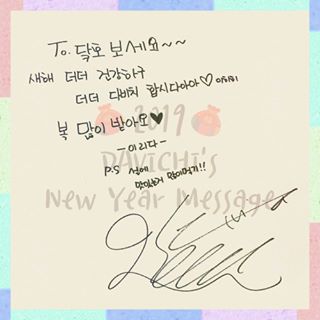 To. 닻호 보세요~~
새해 더더 건강하구
더더 다비치 합시다아아♡
복 많이 받아요♥
- 이리다 -
P.S 설에
맛있는거 많이먹기!!
2019
DAVICHI's
New Year Message